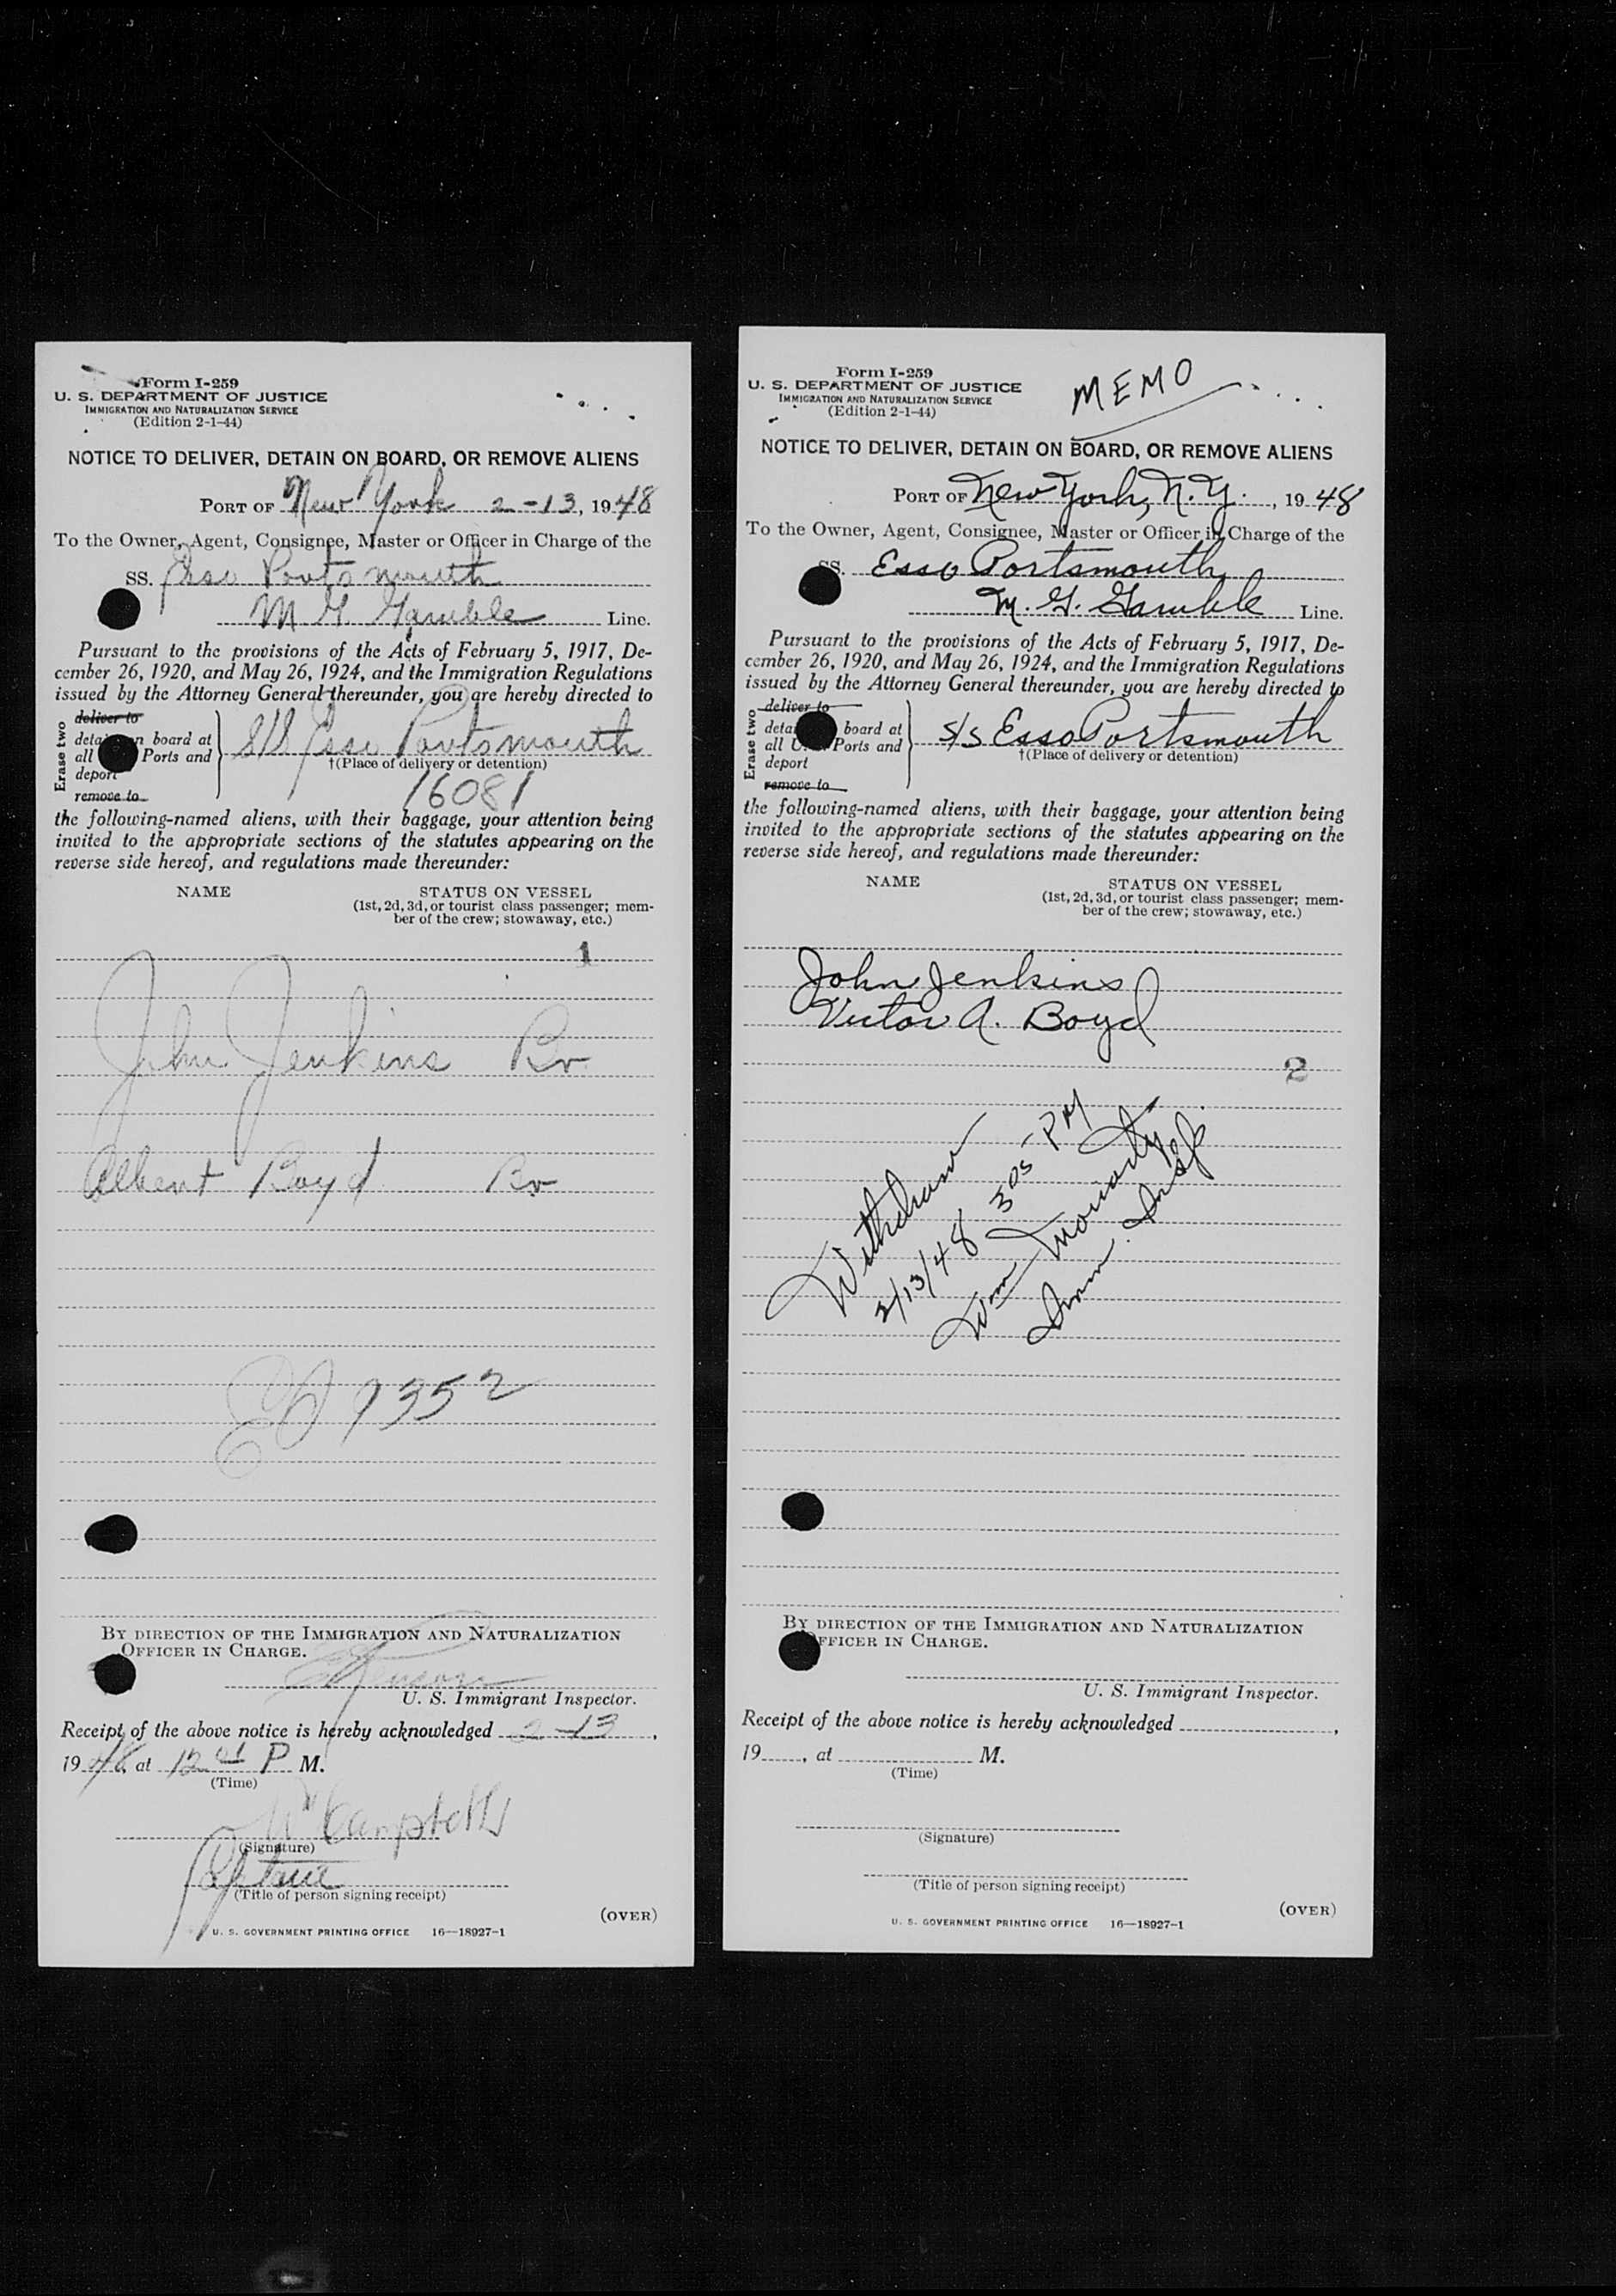 Form I-259
U. S. DEPARTMENT OF JUSTICE
IMMIGRATION AND NATURALIZATION SERVICE
(Edition 2-1-44)
NOTICE TO DELIVER, DETAIN ON BOARD, OR REMOVE ALIENS
PORT OF New York 2-13, 1948
To the Owner, Agent, Consignee, Master or Officer in Charge of the
SS. Esso Portsmouth
M G Gamble Line.
Pursuant to the provisions of the Acts of February 5, 1917, De-
cember 26, 1920, and May 26, 1924, and the Immigration Regulations
issued by the Attorney General thereunder, you are hereby directed to
Erase two
deliver to
deta n board at
all Ports and
deport
remove to
S/S Esso Portsmouth
†(Place of delivery or detention)
16081
the following-named aliens, with their baggage, your attention being
invited to the appropriate sections of the statutes appearing on the
reverse side hereof, and regulations made thereunder:
NAME STATUS ON VESSEL
(1st, 2d, 3d, or tourist class passenger; mem-
ber of the crew; stowaway, etc.)
1
John Jenkins Br
Albert Boyd Br
9352
BY DIRECTION OF THE IMMIGRATION AND NATURALIZATION
OFFICER IN CHARGE.
U. S. Immigrant Inspector.
Receipt of the above notice is hereby acknowledged 2-13,
1948, at 12 01 P M.
(Time)
Campbell
(Signature)
(Title of person signing receipt)
(OVER)
U. S. GOVERNMENT PRINTING OFFICE 16—18927-1
Form I-259
U. S. DEPARTMENT OF JUSTICE
IMMIGRATION AND NATURALIZATION SERVICE
(Edition 2-1-44)
MEMO
NOTICE TO DELIVER, DETAIN ON BOARD, OR REMOVE ALIENS
PORT OF New York, N.Y., 1948
To the Owner, Agent, Consignee, Master or Officer in Charge of the
SS. Esso Portsmouth
M. G. Gamble Line.
Pursuant to the provisions of the Acts of February 5, 1917, De-
cember 26, 1920, and May 26, 1924, and the Immigration Regulations
issued by the Attorney General thereunder, you are hereby directed to
Erase two
deliver to
detai board at
all U. Ports and
deport
remove to
S/S Esso Portsmouth
†(Place of delivery or detention)
the following-named aliens, with their baggage, your attention being
invited to the appropriate sections of the statutes appearing on the
reverse side hereof, and regulations made thereunder:
NAME STATUS ON VESSEL
(1st, 2d, 3d, or tourist class passenger; mem-
ber of the crew; stowaway, etc.)
John Jenkins
Victor A. Boyd
2
Withdrawn
2/13/48 3 05 PM
Wm Moriarty
Imm. Insp.
BY DIRECTION OF THE IMMIGRATION AND NATURALIZATION
OFFICER IN CHARGE.
U. S. Immigrant Inspector.
Receipt of the above notice is hereby acknowledged ,
19 , at M.
(Time)
(Signature)
(Title of person signing receipt)
(OVER)
U. S. GOVERNMENT PRINTING OFFICE 16—18927-1